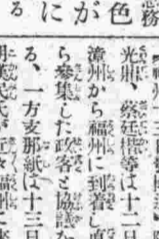 務
色
が
に
る
光鼐、蔡廷楷等は十二日
漳州から福州に到着し直
ら參集した政客と協議な
る、一方支那紙は十三日